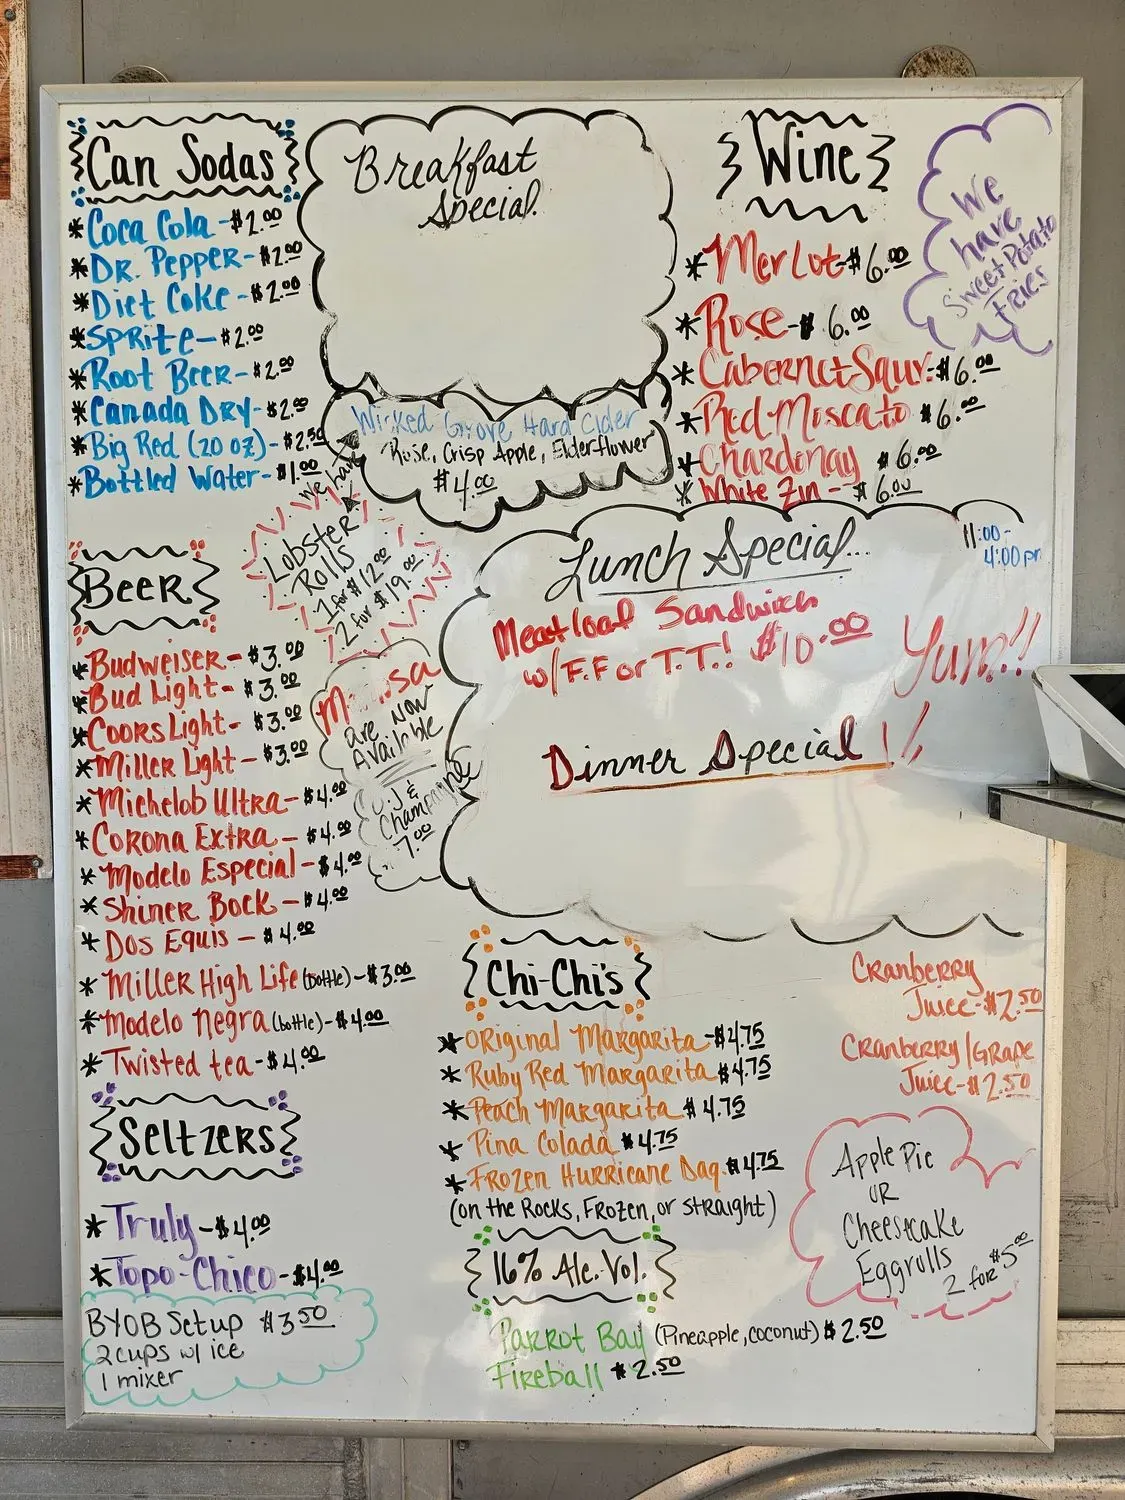 Can Sodas
*Coca Cola - $2.00
*DR. Pepper - $2.00
*Diet Coke - $2.00
*Sprite - $2.00
*Root Beer - $2.00
*Canada Dry - $2.00
*Big Red (20 oz) - $2.50
*Bottled Water - $1.00
Breakfast
Special.
Wicked Grove Hard Cider
Rose, Crisp Apple, Elderflower
$4.00
Wine
*Merlot - $6.00
*Rose - $6.00
*Cabernet Sauv. $6.00
*Red Moscato $6.00
*Chardonay $6.00
*White Zin - $6.00
We
have
Sweet Potato
Fries
we have
Lobster
Rolls
1 for $12.00
2 for $19.00
Beer
*Budweiser - $3.00
*Bud Light - $3.00
*Coors Light - $3.00
*Miller Light - $3.00
*Michelob Ultra - $4.00
*Corona Extra - $4.00
*Modelo Especial - $4.00
*Shiner Bock - $4.00
*Dos Equis - $4.00
*Miller High Life (bottle) - $3.00
*Modelo Negra (bottle) - $4.00
*Twisted tea - $4.00
are Now
Available
O.J &
Champagne
7.00
Lunch Special...
11:00 -
4:00 pm
Meatloaf Sandwich
w/ F.F or T.T.! $10.00
Yum!!
Dinner Special
Seltzers
*Truly - $4.00
*Topo-Chico - $4.00
BYOB Setup $3.50
2 cups w/ ice
1 mixer
Chi-Chi's
*Original Margarita - $4.75
*Ruby Red Margarita $4.75
*Peach Margarita $4.75
*Pina Colada $4.75
*Frozen Hurricane Daq. $4.75
(on the Rocks, Frozen, or straight)
16% Alc. Vol.
Parrot Bay (Pineapple, coconut) $2.50
Fireball *2.50
Cranberry
Juice - $2.50
Cranberry/Grape
Juice - $2.50
Apple Pie
OR
Cheesecake
Eggrolls
2 for $5.00